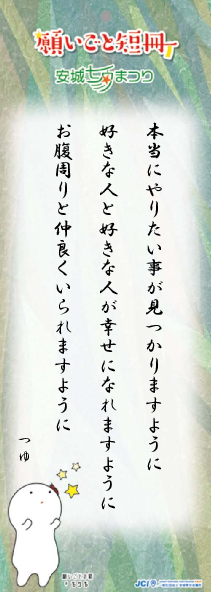 願いごと短冊
安城七夕まつり
本当にやりたい事が見つかりますように
好きな人と好きな人が幸せになれますように
お腹周りと仲良くいられますように
つゆ
JCI